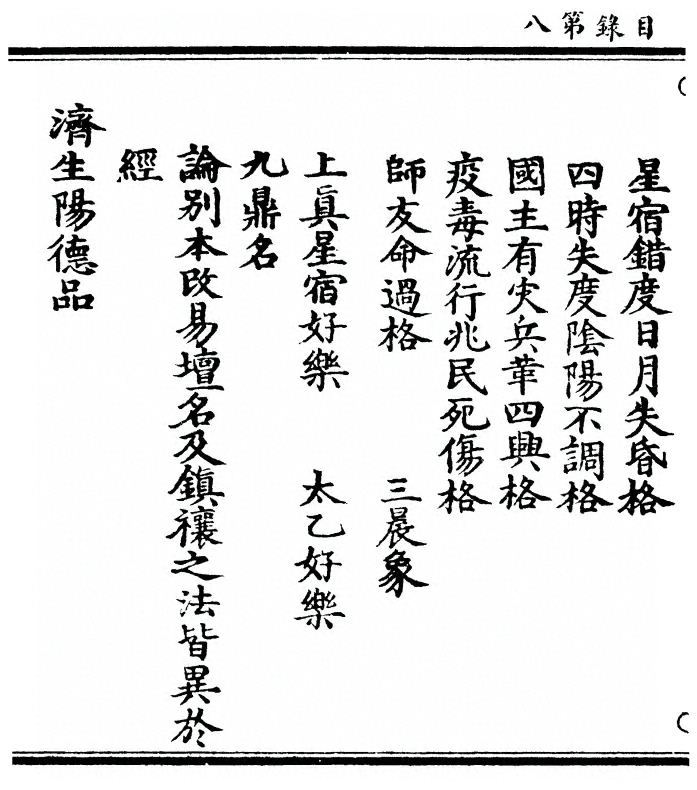 目錄第八
星宿錯度日月失昏格
四時失度陰陽不調格
國主有灾兵革四興格
疫毒流行兆民死傷格
師友命過格 三晨象
上眞星宿好樂 太乙好樂
九鼎名
論別本改易壇名及鎮禳之法皆異於
經
濟生陽德品